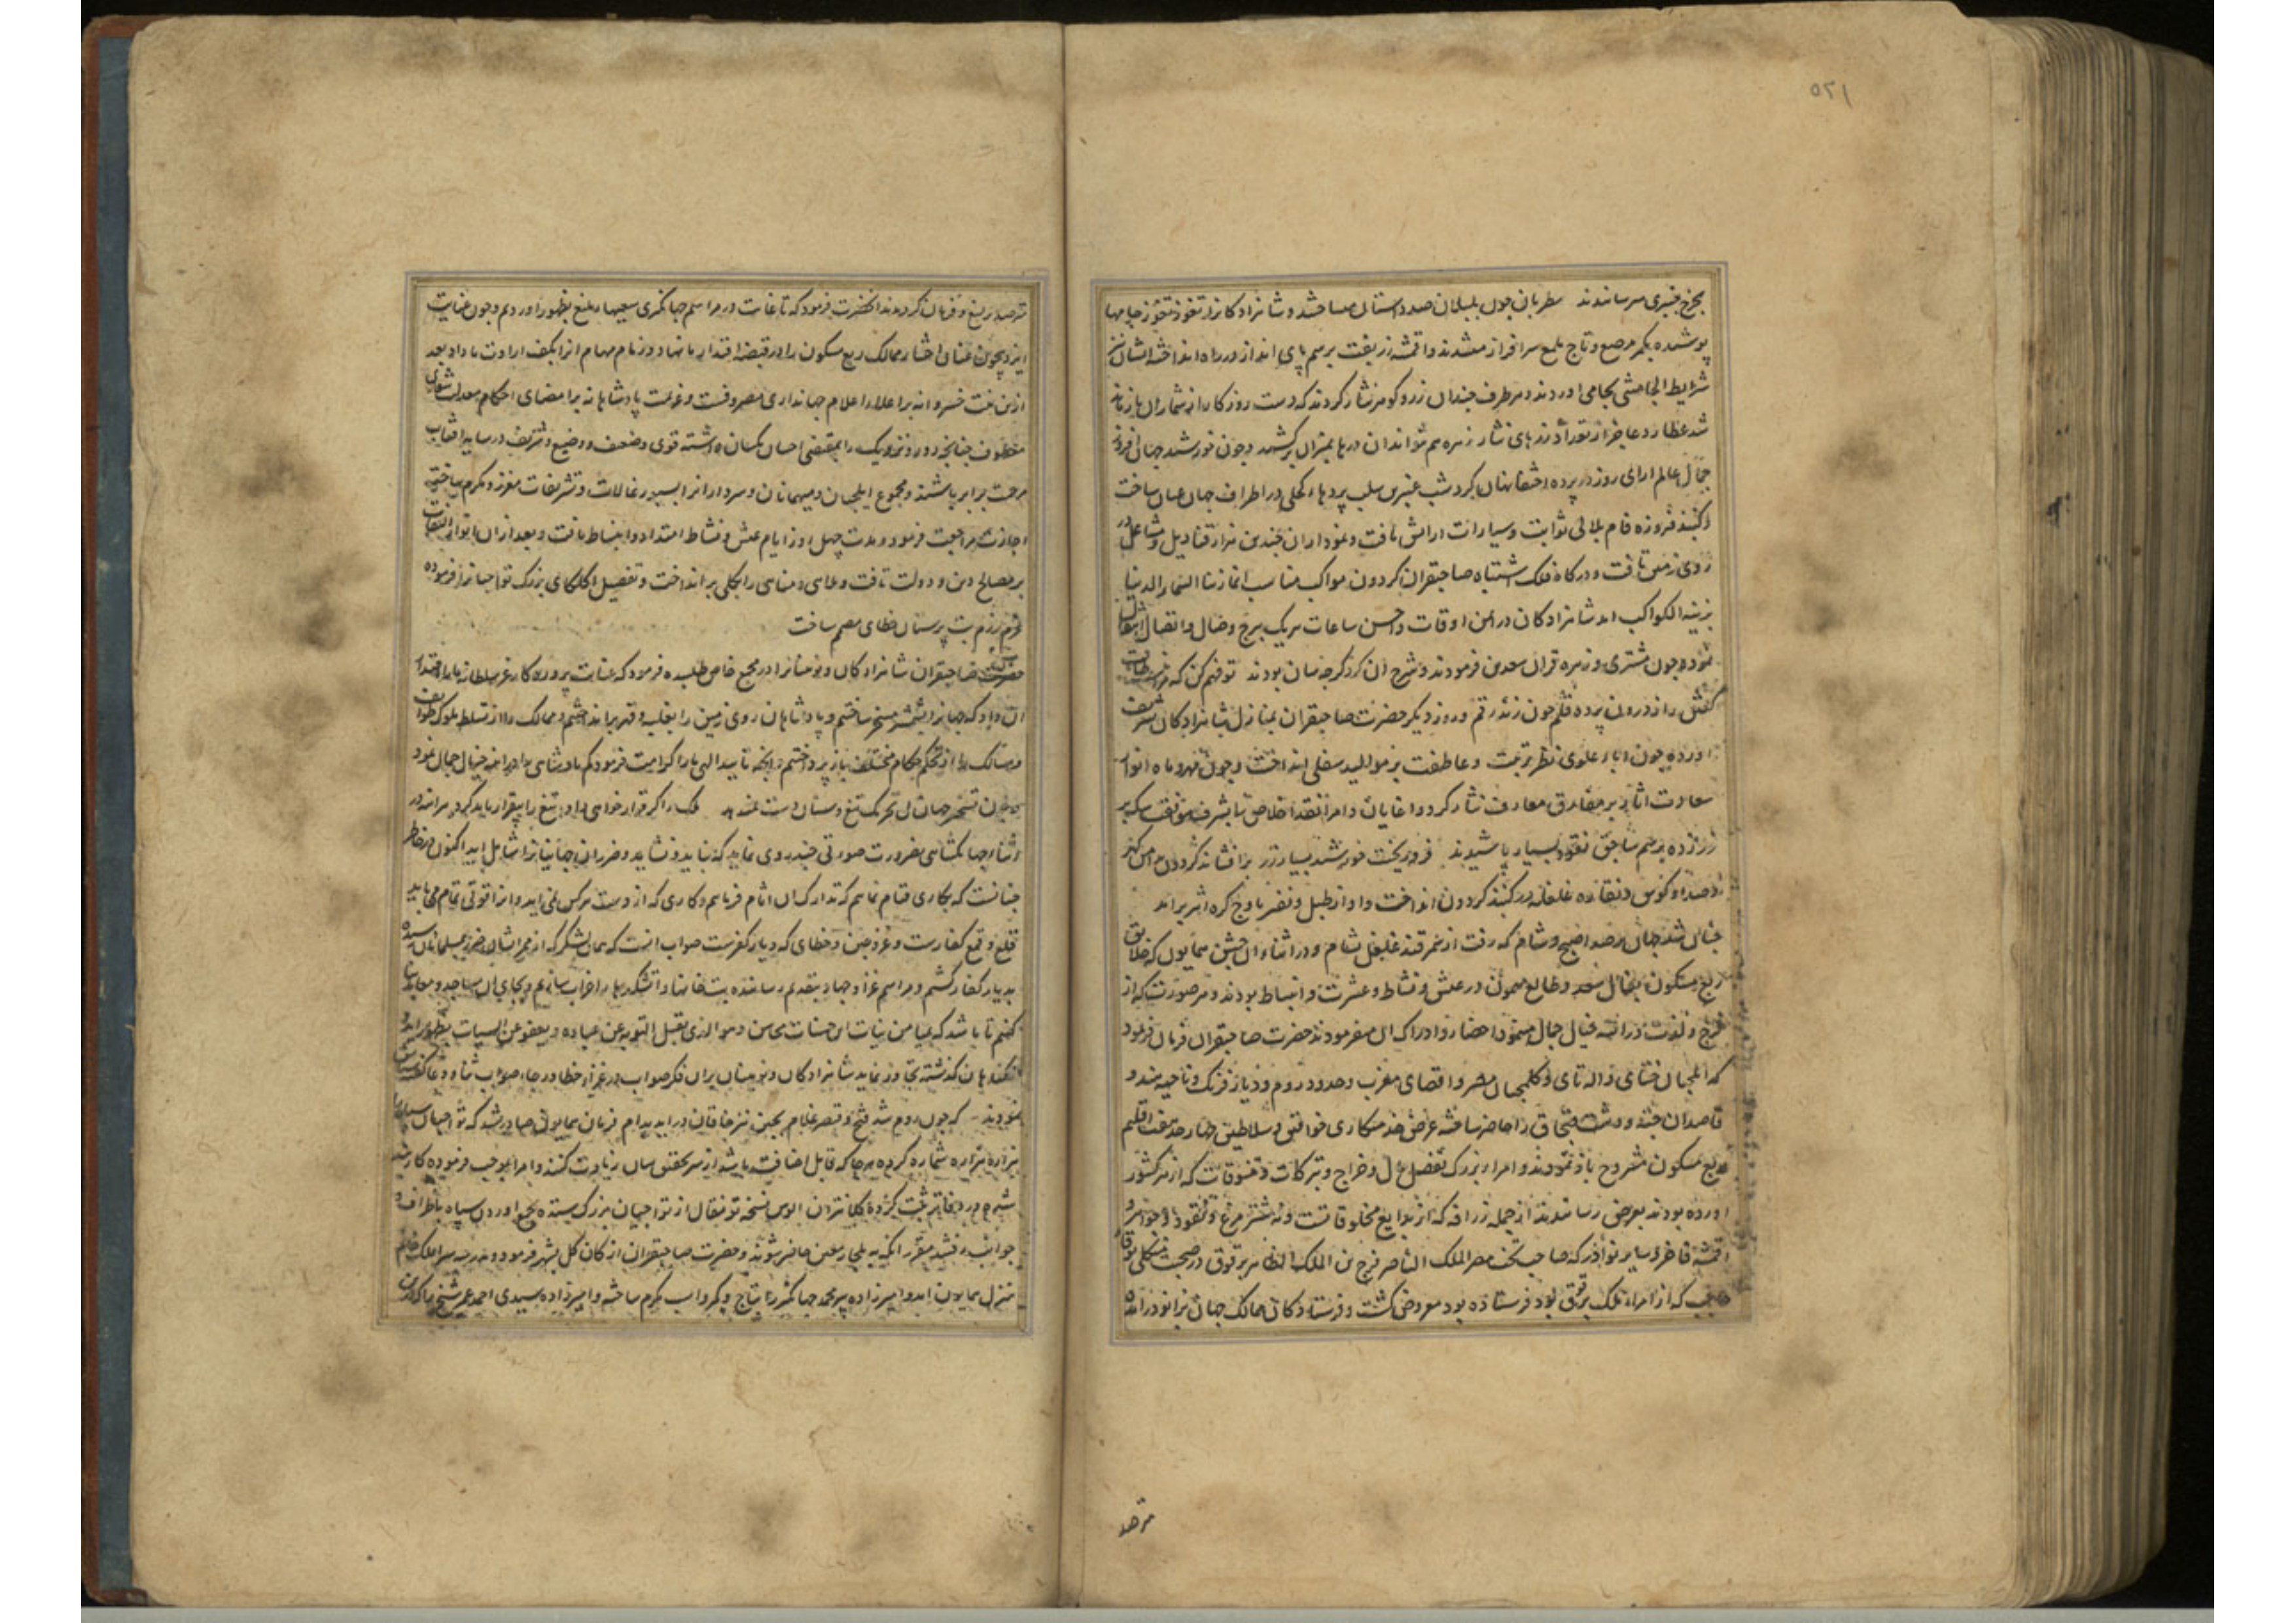 ۵۲۱
بچرخ چنبری میرسانیدند مطربان چون بلبلان صد دستان میساختند و شاهزادگان از تقوز تقوز جامها
پوشیده بکمر مرصع و تاج ملمع سرافراز میشدند و اقمشه زربفت برسم پای انداز در راه انداخته ایشان نیز
شرایط الجامشی بجای می اوردند و هر طرف چندان زر و گوهر نثار کردند که دست روزگار از شمار ان باز ماند
شد عطارد عاجز از تعداد زرهای نثار زهره هم نتواند ان درها بمیزان برکشید و چون خورشید جهان افروز
جمال عالم ارای روز در پرده اختفا نهان کرد شب عنبرین سلب پردهاء کحلی در اطراف جهان عیان ساخت
و گنبد فیروزه فام بلالی ثوابت و سیارات ارایش یافت و نمودار ان چندین هزار قنادیل و مشاعل در
روی زمین تافت و درگاه فلک اشتباه صاحبقران گردون مواکب مناسب انا زینا السماء الدنیا
بزینة الکواکب امد شاهزادگان در ایمن اوقات و احسن ساعات هریک ببرج وصال و اتصال انتقال
نمود و چون مشتری و زهره قران سعدین فرمودند و شرح ان کرد که چه سان بودند تو فهم کن که
گفتن راز درون پرده قلم چون زند رقم و روز دیگر حضرت صاحبقران بمنازل شاهزادگان تشریف
اورده چون اباء علوی نظر تربیت و عاطفت بر موالید سفلی انداخت و چون مهر و ماه انوار
سعادت اثار بر مفارق معارف نثار کرد و اغایان و امرا نقد اخلاص تا بشرف موقف سکه بر
زر زده برسم ساچق نقود بسیار پاشیدند فرو ریخت خورشید بسیار زر بر افشاند گردون
و صداء کوس و نقاره غلغله در گنبد گردون انداخت و اواز طبل و نفیر باوج کره اثیر براند
چنان شد جهان پر صدا صبح و شام که رفت از سمرقند غلغل بشام و در اثناء ان جشن همایون که خلایق
ربع مسکون بفال سعد و طالع میمون در عیش و نشاط و عشرت و انبساط بودند و هر صورت که از
فرح و لذت در اینه خیال جمال مینمود احضار و ادراک ان میفرمودند حضرت صاحبقران فرمان فرمود
که ایلچیان ختای و اله تای و کلمچیان مصر و اقصای مغرب و حدود روم و دیار فرنگ و ناحیه هند و
قاصدان جته و دشت قبچاق را حاضر ساخته عرض خدمتکاری خواقین و سلاطین چهار حد هفت اقلیم
ربع مسکون مشروح باز نمودند و امراء بزرگ تفصیل مال و خراج و تبرکات و تنسوقات که از هر کشور
اورده بودند بعرض رسانیدند از جمله زرافه که از بدایع مخلوقاتست و نه شتر مرغ و نقود و جواهر و
اقمشه فاخر و سایر نوادر که صاحب تخت مصر الملک الناصر فرج بن الملک الظاهر برقوق در صحبت منکلی بوقا
حاجب که از امراء ملک برقوق بود فرستاده بود معروض گشت و فرستادگان ممالک جهان بزانو درامده
مرصد
ترصد یرلیغ و فرمان کردند انحضرت فرمود که تا غایت در مراسم جهانگیری سعیهاء بلیغ بظهور اوردیم و چون عنایت
ایزد بیچون عنان اختیار ممالک ربع مسکون را در قبضه اقتدار ما نهاد و زمام مهام انرا بکف ارادت ما داد بعد
ازین نیت خسروانه بر اعلاء اعلام جهانداری مصروفست و عزیمت پادشاهانه بر امضای احکام معدلت شعاری
معطوف چنانچه دور و نزدیک را بمقتضی احسان یکسان داشته قوی و ضعیف و وضیع و شریف در سایه افتاب
مرحمت برابر باشند و مجموع ایلچیان و میهمانان و سرداران را بسیورغالات و تشریفات معزز و مکرم ساخته
اجازت مراجعت فرمود و مدت چهل روز ایام عیش و نشاط امتداد و انبساط یافت و بعد از ان انوار التفات
بر مصالح دین و دولت تافت و ملاهی و مناهی را بکلی برانداخت و تفصیل الکاهای بزرگ تواجیان را فرموده
عزم رزم بت پرستان خطای مصمم ساخت
حضرت صاحبقران شاهزادگان و نوینان را در مجمع خاص طلبیده فرمود که عنایت پروردگار عز سلطانه ما را اقتدار
ان داد که جهان را بشمشیر مسخر ساختیم و پادشاهان روی زمین را بغلبه و قهر برانداختیم و ممالک را از تسلط ملوک طوایف
و مسالک را از تحکم حکام مختلف باز پرداختیم و انچه تایید الهی ما را کرامت فرمود کم پادشاهی را در اینه خیال جمال نمود
و چون تسخیر جهان بی تحریک تیغ و سنان دست نمیدهد ملک را گر قرار خواهی داد تیغ را بیقرار باید کرد هر اینه در
اثناء جهانگشایی بضرورت صورتی چند روی نماید که نباید و نشاید و ضرر ان جهانیان را شامل اید اکنون در خاطر
چنانست که بکاری قیام نماییم که تدارک ان اثام فرماییم و کاری که از دست هرکس نمی اید و انرا قوتی تمام می باید
قلع و قمع کفارست و غزو چین و خطای که دیار کفرست صواب انست که همان لشکر که از ممر ایشان ضرر بمسلمانان رسیده
بدیار کفار کشیم و مراسم غزا و جهاد بتقدیم رسانیده بتخانها و اتشکدها را خراب سازیم و بجای ان مساجد و معابد بنا
کنیم تا باشد که بمیامن نیات این حسنات بمحاسن و هو الذی یقبل التوبة عن عباده و یعفو عن السیات بظهور اید و
گناهان گذشته تجاوز نماید شاهزادگان و نوینان بران فکر صواب در غزاء خطا در جاء صواب ثنا و دعا گفته
نمودند که چون روم شد فتح و قیصر غلام بچین نیز خاقان دراید بدام فرمان همایون صادر شد که تواجیان
هزاره هزاره شماره کرده هرجا که قابل اضافت باشد از سر تحقیق سان زیادت کنند و امرا بموجب فرموده کاربند
شده در دفاتر ثبت کرده کلانتران الوس نسخه تونقال از تواجیان بزرگ ستده بجمع اوردن سپاه باطراف و
جوانب رفتند مقرر انکه به یلجار معین حاضر شوند و حضرت صاحبقران از کان کل بشهر فرمود و مدرسه سرای ملک خانم
منزل همایون امد و امیرزاده پیر محمد جهانگیر را بتاج و کمر و اسب مکرم ساخته و امیرزاده سیدی احمد عمر شیخ را